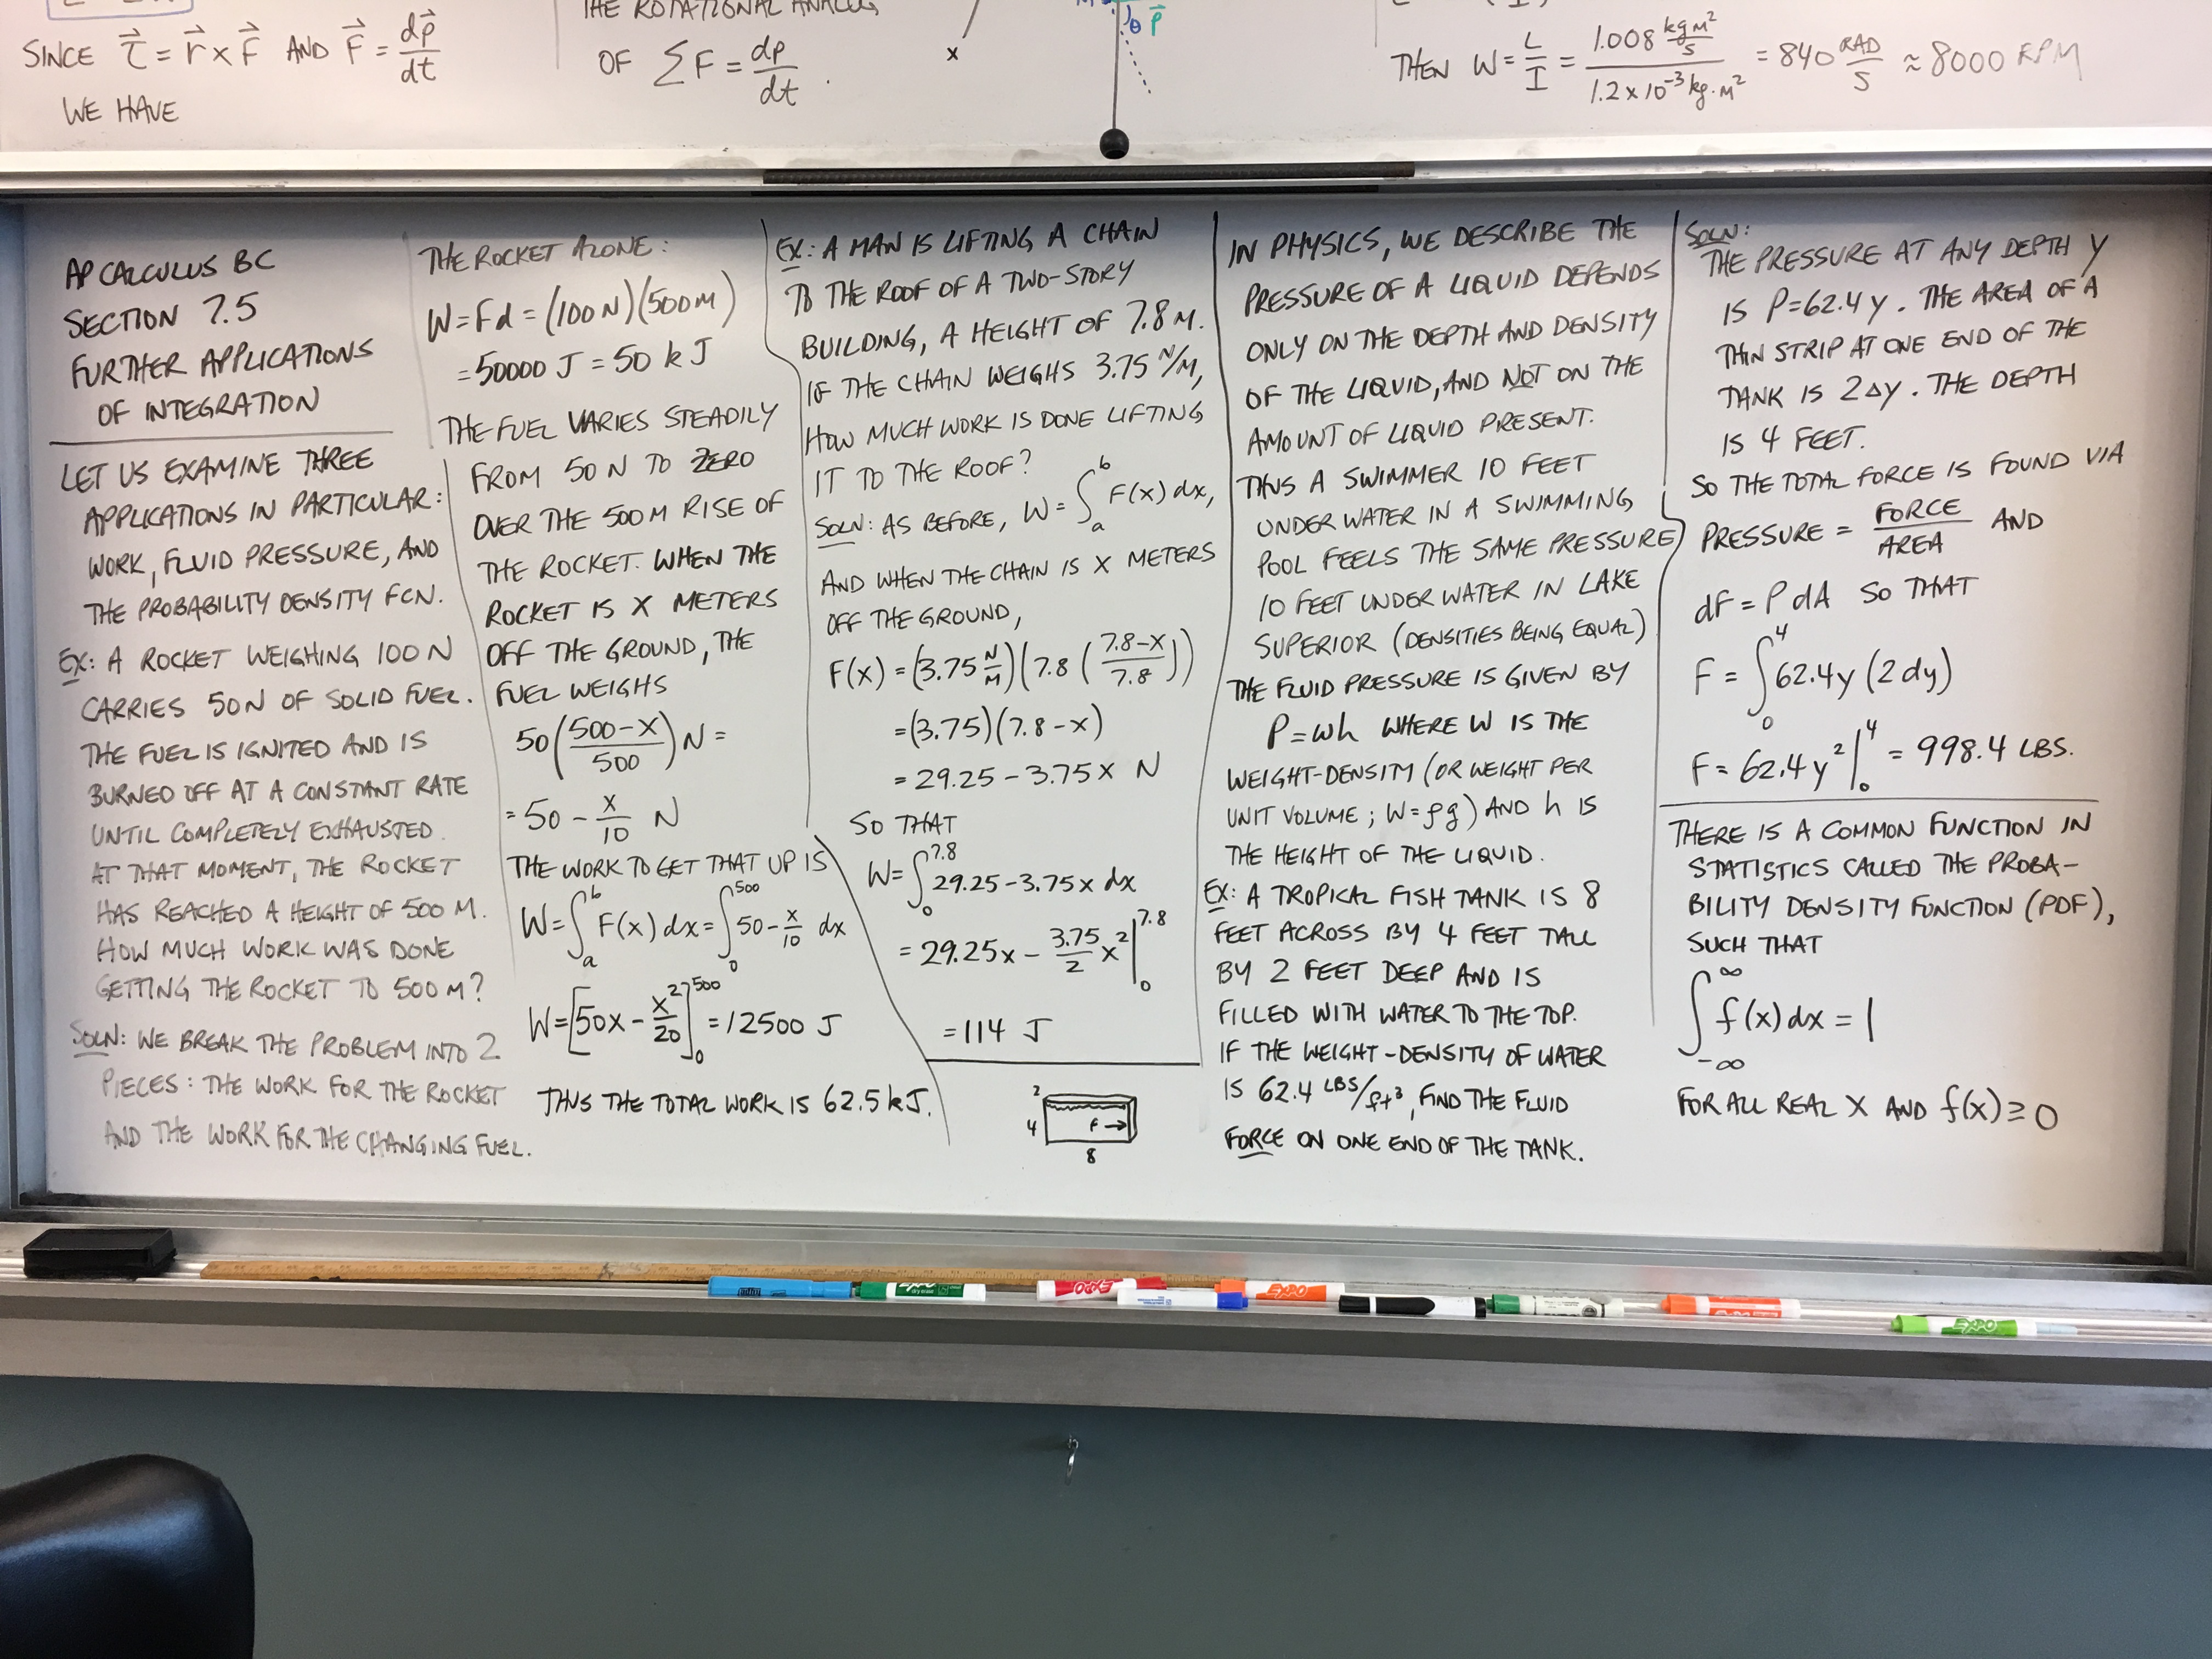 SINCE τ⃗ = r⃗ x F⃗ AND F⃗ = dp⃗/dt
WE HAVE
THE ROTATIONAL ANALOG
OF ΣF = dp/dt .
x
θ p⃗
THEN W = L/I = 1.008 kg m²/s / 1.2 x 10⁻³ kg·m² = 840 RAD/S ≈ 8000 RPM
AP CALCULUS BC
SECTION 7.5
FURTHER APPLICATIONS
OF INTEGRATION
LET US EXAMINE THREE
APPLICATIONS IN PARTICULAR:
WORK, FLUID PRESSURE, AND
THE PROBABILITY DENSITY FCN.
EX: A ROCKET WEIGHING 100 N
CARRIES 50N OF SOLID FUEL.
THE FUEL IS IGNITED AND IS
BURNED OFF AT A CONSTANT RATE
UNTIL COMPLETELY EXHAUSTED.
AT THAT MOMENT, THE ROCKET
HAS REACHED A HEIGHT OF 500 M.
HOW MUCH WORK WAS DONE
GETTING THE ROCKET TO 500 M?
SOLN: WE BREAK THE PROBLEM INTO 2
PIECES: THE WORK FOR THE ROCKET
AND THE WORK FOR THE CHANGING FUEL.
THE ROCKET ALONE:
W = Fd = (100 N)(500 M)
= 50000 J = 50 kJ
THE FUEL VARIES STEADILY
FROM 50 N TO ZERO
OVER THE 500 M RISE OF
THE ROCKET. WHEN THE
ROCKET IS X METERS
OFF THE GROUND, THE
FUEL WEIGHS
50((500-X)/500) N =
= 50 - x/10 N
THE WORK TO GET THAT UP IS
W = ∫_a^b F(x) dx = ∫_0^500 50 - x/10 dx
W = [50x - x²/20]_0^500 = 12500 J
THUS THE TOTAL WORK IS 62.5 kJ.
EX: A MAN IS LIFTING A CHAIN
TO THE ROOF OF A TWO-STORY
BUILDING, A HEIGHT OF 7.8 M.
IF THE CHAIN WEIGHS 3.75 N/M,
HOW MUCH WORK IS DONE LIFTING
IT TO THE ROOF?
SOLN: AS BEFORE, W = ∫_a^b F(x) dx,
AND WHEN THE CHAIN IS X METERS
OFF THE GROUND,
F(x) = (3.75 N/M)(7.8((7.8-x)/7.8))
= (3.75)(7.8-x)
= 29.25 - 3.75x N
SO THAT
W = ∫_0^7.8 29.25 - 3.75x dx
= 29.25x - 3.75/2 x² |_0^7.8
= 114 J
2
4
F →
8
IN PHYSICS, WE DESCRIBE THE
PRESSURE OF A LIQUID DEPENDS
ONLY ON THE DEPTH AND DENSITY
OF THE LIQUID, AND NOT ON THE
AMOUNT OF LIQUID PRESENT.
THUS A SWIMMER 10 FEET
UNDER WATER IN A SWIMMING
POOL FEELS THE SAME PRESSURE
10 FEET UNDER WATER IN LAKE
SUPERIOR (DENSITIES BEING EQUAL)
THE FLUID PRESSURE IS GIVEN BY
P = wh WHERE W IS THE
WEIGHT-DENSITY (OR WEIGHT PER
UNIT VOLUME; W = ρg) AND h IS
THE HEIGHT OF THE LIQUID.
EX: A TROPICAL FISH TANK IS 8
FEET ACROSS BY 4 FEET TALL
BY 2 FEET DEEP AND IS
FILLED WITH WATER TO THE TOP.
IF THE WEIGHT-DENSITY OF WATER
IS 62.4 LBS/ft³, FIND THE FLUID
FORCE ON ONE END OF THE TANK.
SOLN:
THE PRESSURE AT ANY DEPTH Y
IS P = 62.4 y. THE AREA OF A
THIN STRIP AT ONE END OF THE
TANK IS 2Δy. THE DEPTH
IS 4 FEET.
SO THE TOTAL FORCE IS FOUND VIA
PRESSURE = FORCE/AREA AND
dF = P dA SO THAT
F = ∫_0^4 62.4y (2 dy)
F = 62.4 y² |_0^4 = 998.4 LBS.
THERE IS A COMMON FUNCTION IN
STATISTICS CALLED THE PROBA-
BILITY DENSITY FUNCTION (PDF),
SUCH THAT
∫_-∞^∞ f(x) dx = 1
FOR ALL REAL X AND f(x) ≥ 0
EXPO
EXPO
EXPO
EXPO
EXPO